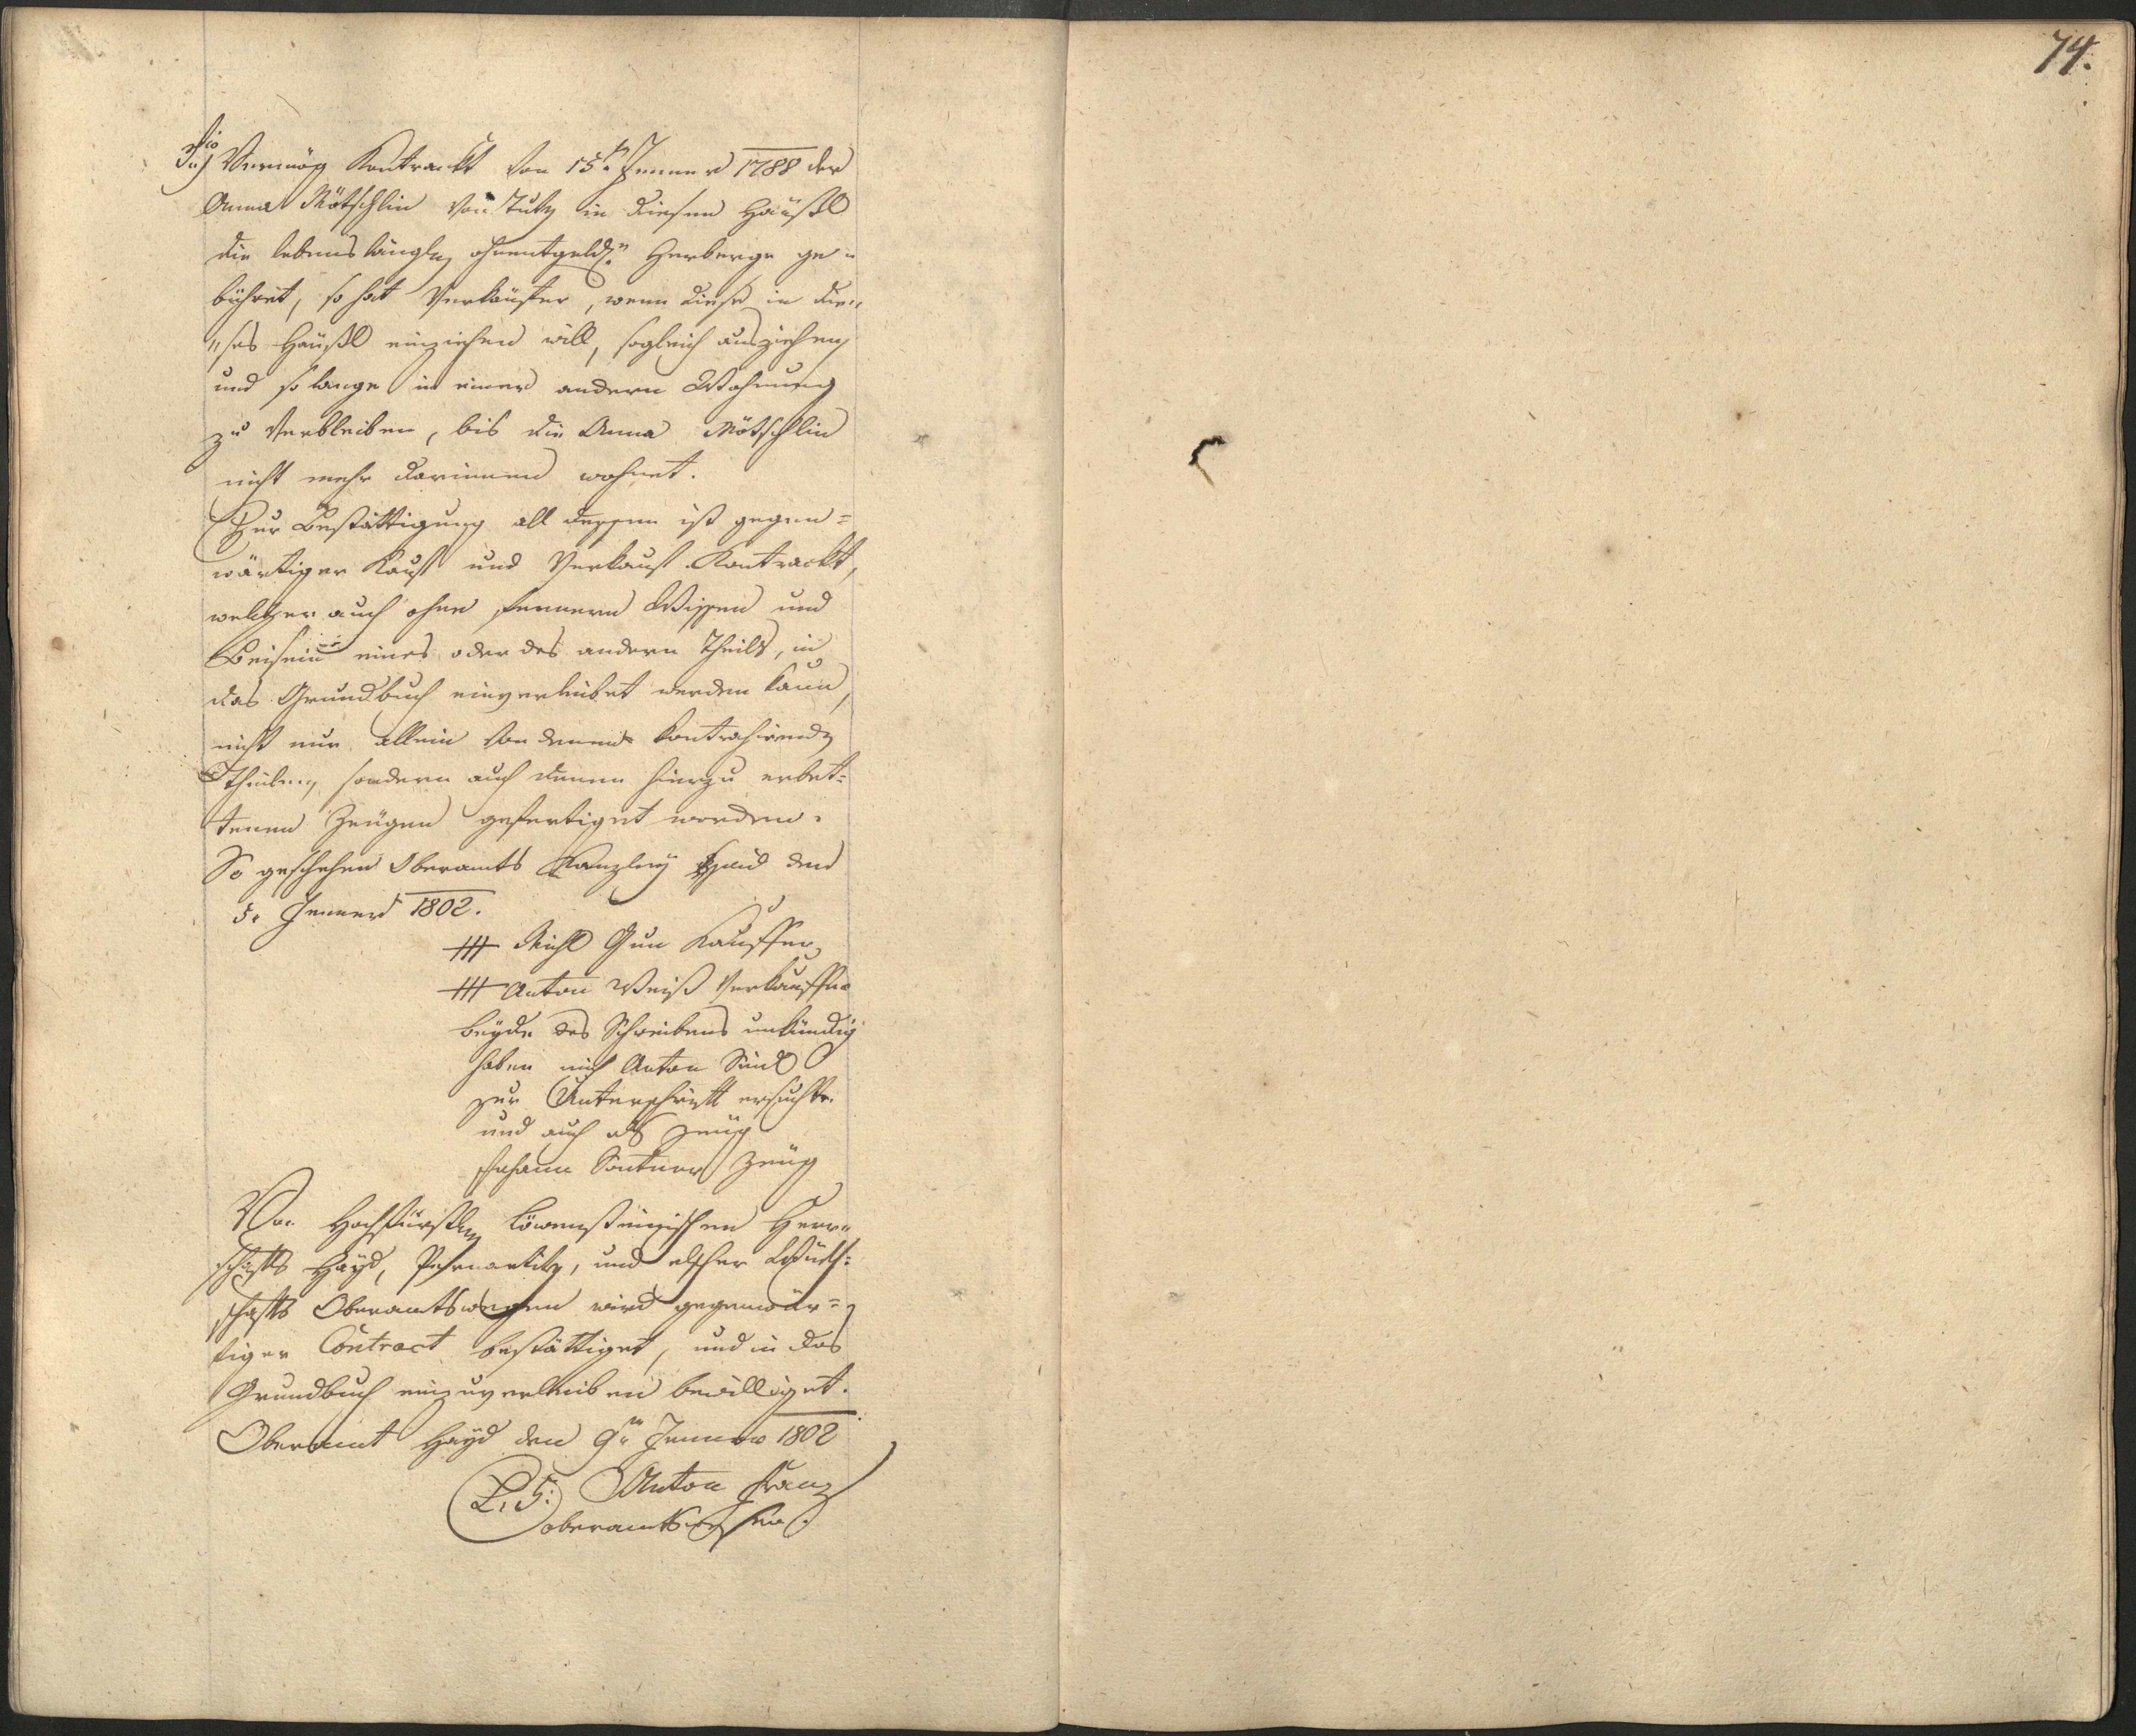 74.
3tio Vermög Kontrackt von 15tn Jenner 1788 der
Anna Mötschlin von Tutz in diesen Häußl
die lebenslängle ohnentgeldle Herberge ge„
bühret, so hat Verkäufer, wenn diese in die„
„ses Häußl einziehen will, sogleich ausziehen,
und so lange in einer andern Wohnung
zu Verbleiben, bis die Anna Mötschlin
nicht mehr darinnen wohnet.
Zur Bestättigung all dessen ist gegen=
wärtiger Kauf und Verkauf Kontrackt,
welcher auch ohne fernern Wissen und
Beisein eines oder des andern Theils, in
das Grundbuch einverleibet werden kann,
nicht nur allein von denen kontrahirendn
Theilen, sondern auch denen hierzu erbet=
tenen Zeugen gefertiget worden.
So geschehen Oberamts Kanzley Haid den
5. Jenner 1802.
+++ Michl Kauffer
+++ Anton Weiß Verkauffer
beyde des Schreibens unkündig
haben mich Anton
zur Unterschrift ersucht
und auch als Zeug
Johann Zeug
Von Hochfürstln Löwensteinischen Herr„
schafts Hayd, und Wirth=
schafts Oberamtswegen wird gegenwär=
tiger Contract bestättiget, und in das
Grundbuch einzuverleiben bewilliget.
Oberamt Hayd den 9tn Jenner 1802
L. S. Anton Franz